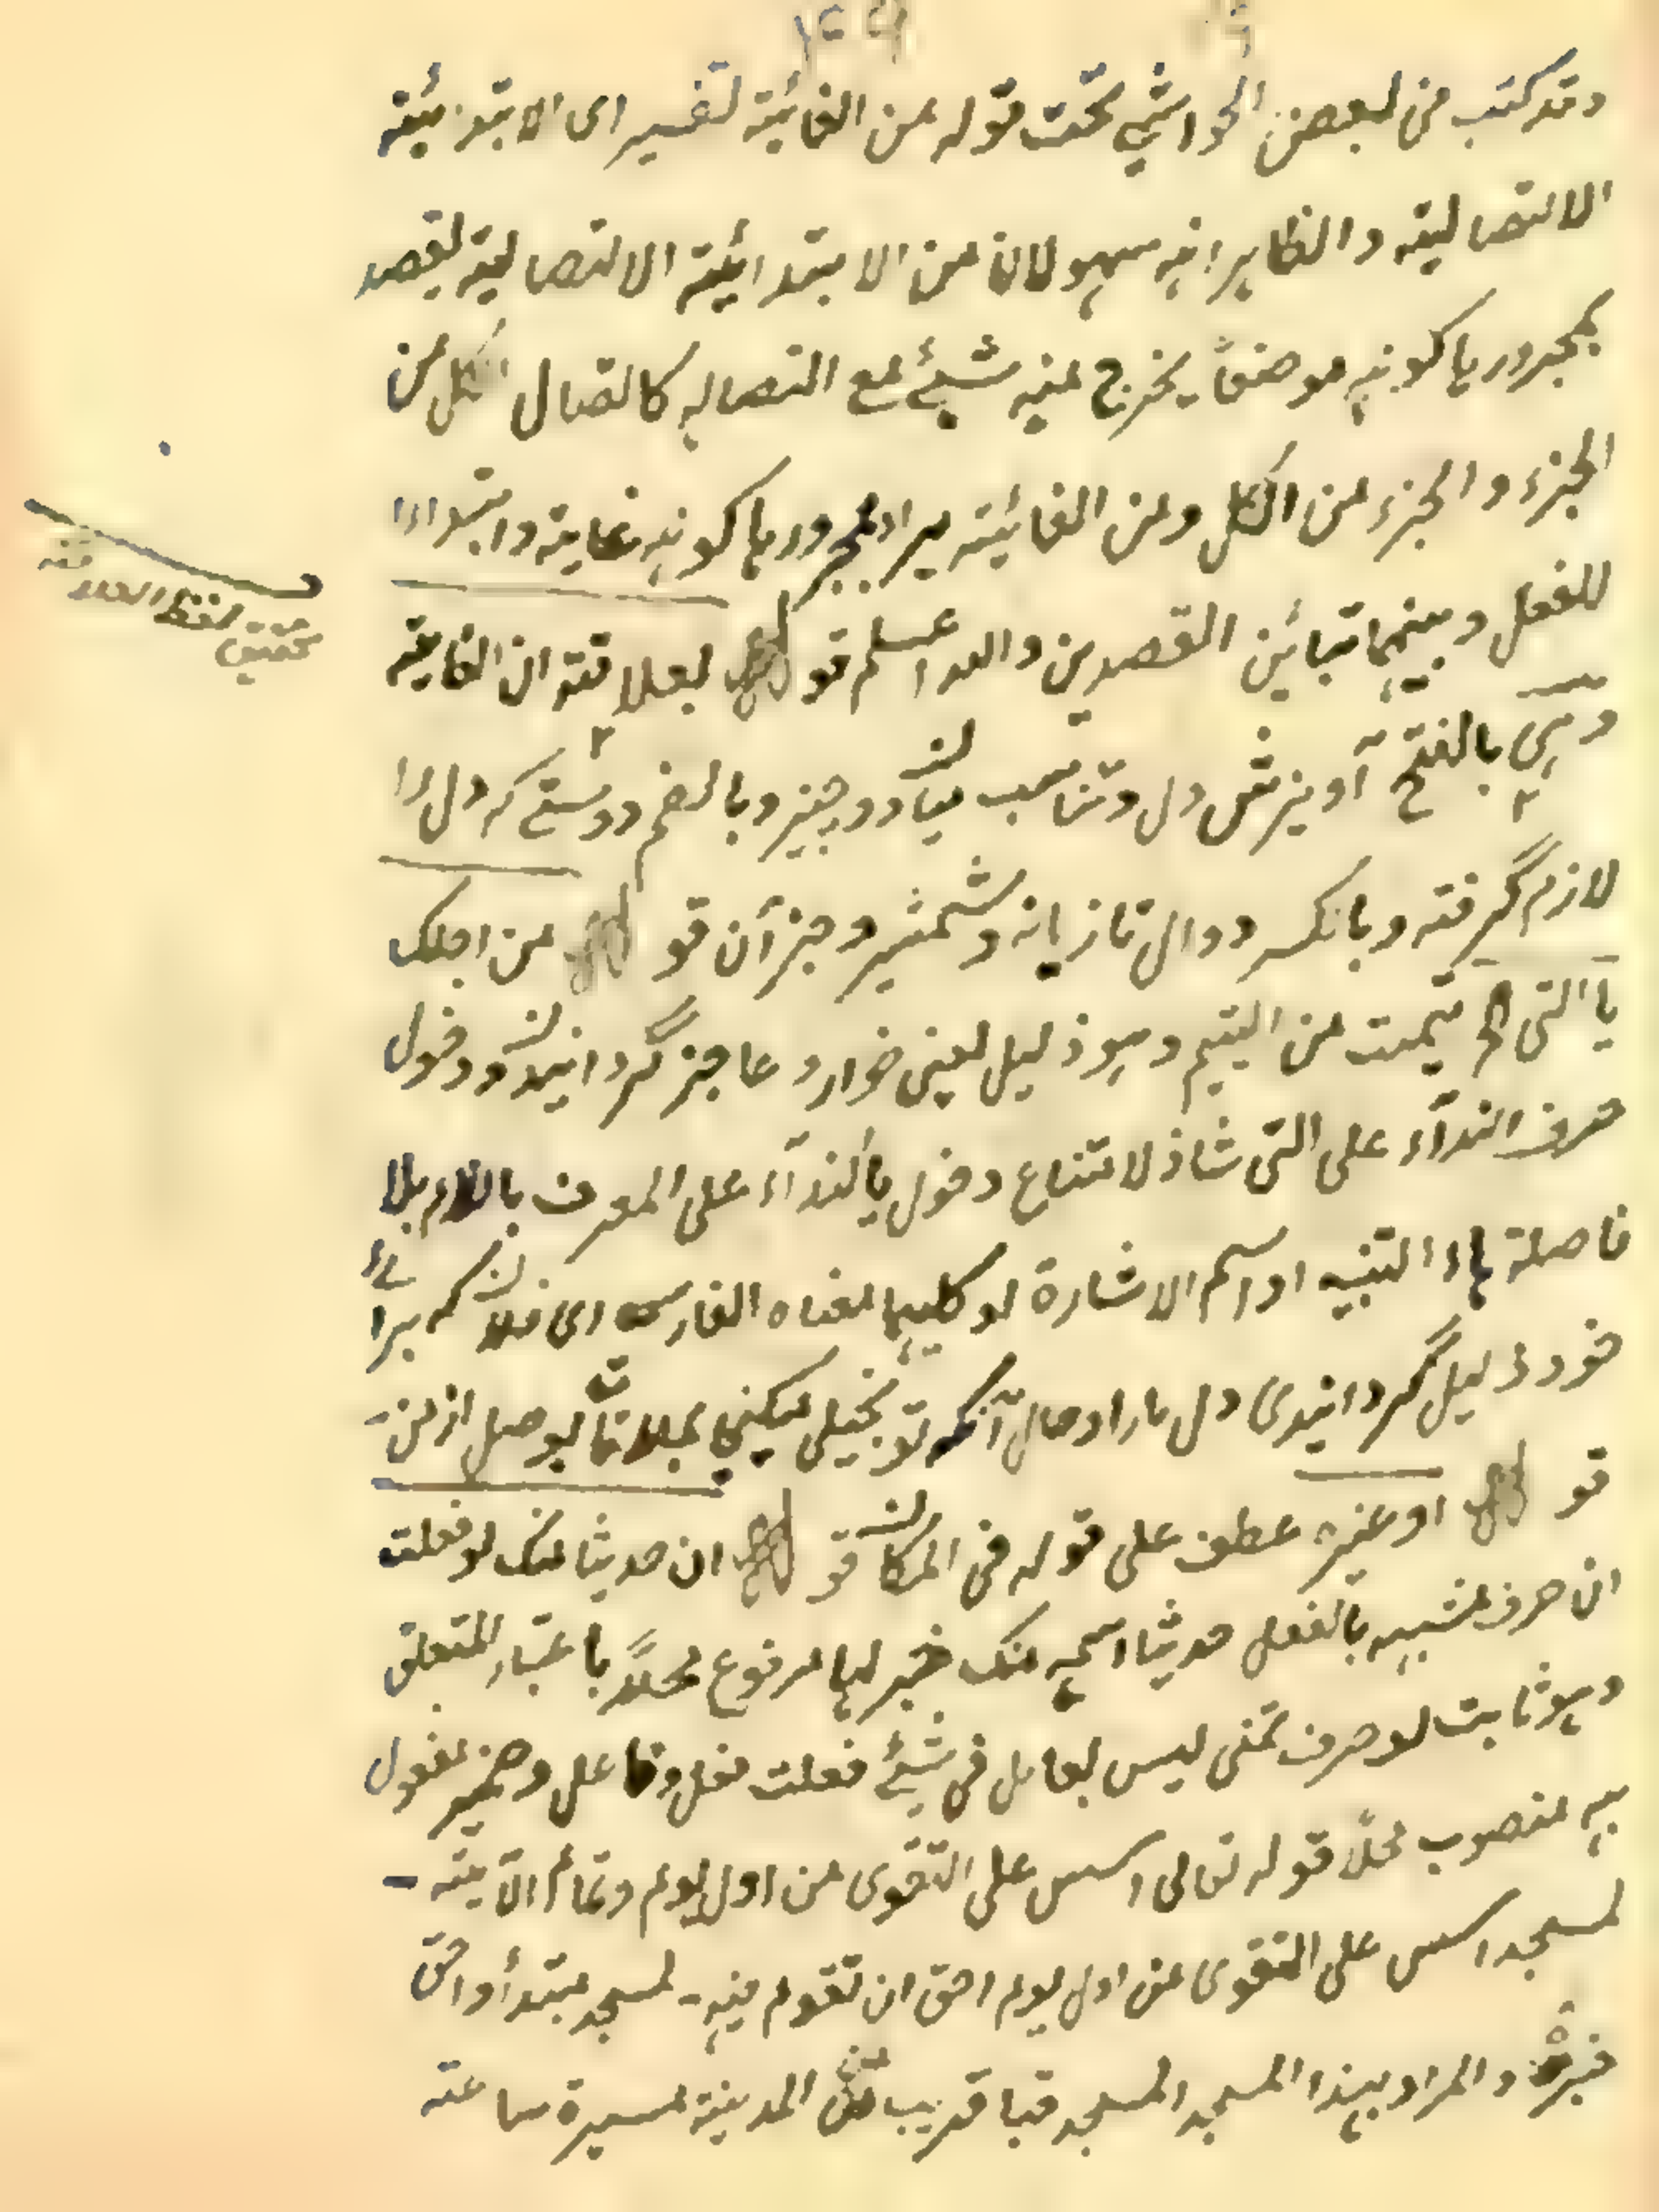 وقد كتب فى بعض الحواشي تحت قوله من الغائية تفسير اى الابتدئية
الاتصالية والظاہر انہ سہو لان من الابتدائية الاتصالية يقصد
بمجرورہا كونہ موضعاً يخرج منہ شيئ مع اتصالہ كاتصال الكل من
الجزء والجزء من الكل ومن الغائية يراد بمجرورہا كونہ غاية وابتداءا
للفعل وبينہما تبائن القصدين واللہ اعلم قولہ لعلاقة ان الغاية
وہى بالفتح آويزش دل وتناسب ميان دو چيز وبالضم دوستى كہ دل را
لازم گرفتہ وبالكسر دوال تازيانہ وشمشير وجز آن قولہ من اجلك
يا التى الخ تيمت من التيم وہو ذليل يعنى خوار وعاجز گردانيدن ودخول
حرف الندآء على التى شاذ لامتناع دخول يا لندآء على المعرف باللام بلا
فاصلة ہاء التنبيہ او اسم الاشارة او كليہما معناه الفارسى اى فلان كہ برائے
خود ذليل گردانيدى دل مارا وحال آنكہ تو بخيلى ميكنى بملاقات بوصل از من
قولہ او غيره عطف على قولہ فى المكان قولہ ان حديثا منك لو فعلت
ان حرف مشبہ بالفعل حديثا اسمہ منك خبر لہا مرفوع محلاً باعتبار المتعلق
وہو ثابت لو حرف تمنى ليس بعامل فى شيئ فعلت فعل وفاعل وضمير مفعول
بہ منصوب محلا قولہ تعالى اسس على التقوى من اول يوم وتمام الآية ـ
لمسجد اسس على التقوى من اول يوم احق ان تقوم فيہ ـ لمسجد مبتدأ واحق
خبره والمراد بہذا المسجد المسجد قبا قريب من المدينة مسيرة ساعة
تحقيق لفظ العلاقة